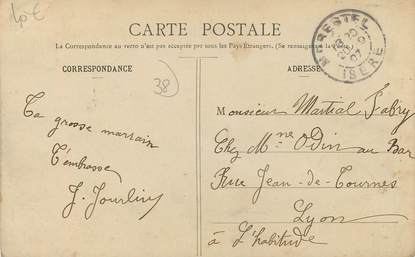 10 €
CARTE POSTALE
La Correspondance au recto n'est pas acceptée par tous les Pays Etrangers. (Se renseigner à la Poste)
CORRESPONDANCE
ADRESSE
38
MORESTEL
ISÈRE
Ta grosse marrain
T'embrasse
J. Jourlin
Monsieur Martial Fabry
Chez Mme Odin au Bar
Rue Jean-de-Tournes
Lyon
à L'habitude